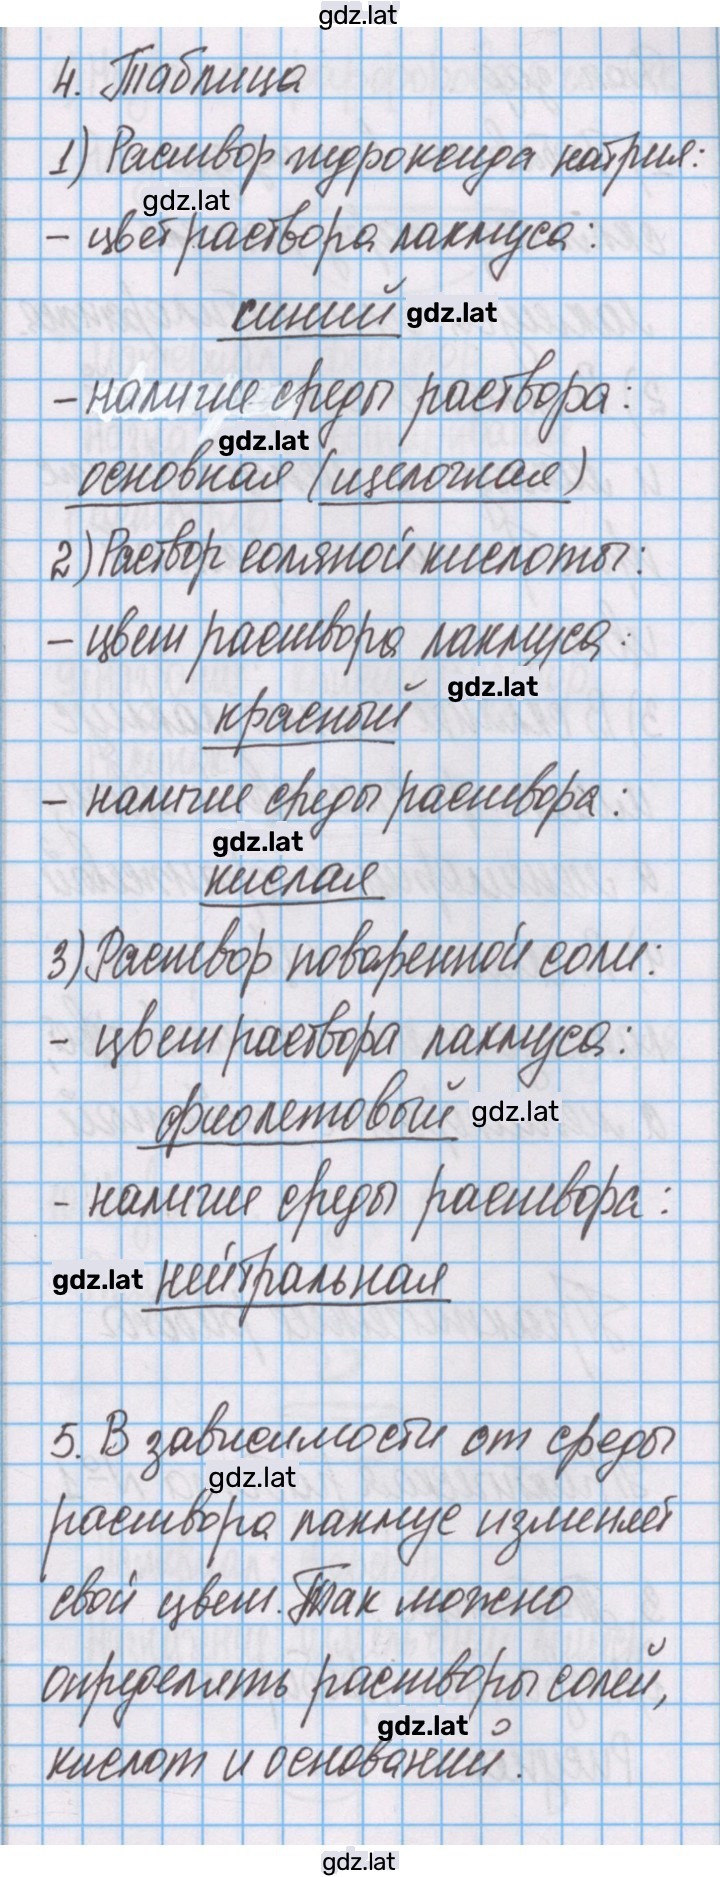 gdz.lat
4. Таблица
1) Раствор гидроксида натрия:
gdz.lat
- цвет раствора лакмуса:
синий gdz.lat
- наличие среды раствора:
gdz.lat
основная (щелочная)
2) Раствор соляной кислоты:
- цвет раствора лакмуса:
gdz.lat
красный
- наличие среды раствора:
gdz.lat
кислая
3) Раствор поваренной соли:
- цвет раствора лакмуса:
фиолетовый gdz.lat
- наличие среды раствора:
gdz.lat нейтральная
5. В зависимости от среды
gdz.lat
раствора лакмус изменяет
свой цвет. Так можно
определять растворы солей,
gdz.lat
кислот и оснований.
gdz.lat